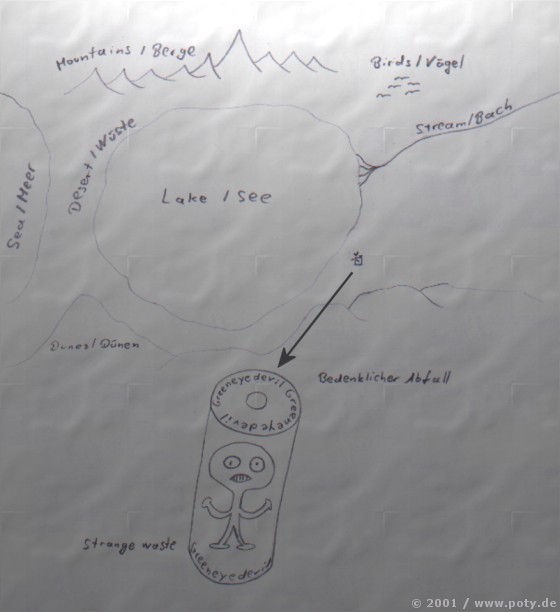 Mountains / Berge
Birds / Vögel
Stream / Bach
Desert / Wüste
Sea / Meer
Lake / See
Dunes / Dünen
Bedenklicher Abfall
Greeneyedevil Greeneyedevil
Strange waste
© 2001 / www.poty.de